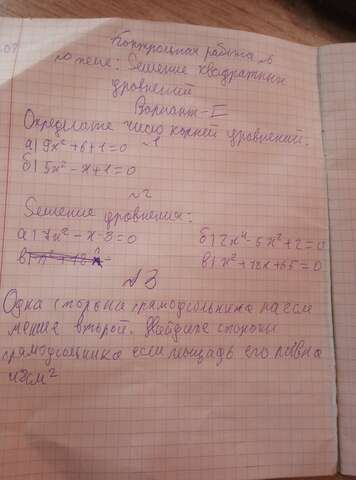 Контрольная работа №
по теме: Решение квадратных
уравнений
Вариант-II
Определите число корней уравнений:
№1
а) 9x²+6+1=0
б) 5x²-x+1=0
№2
Решение уравнения:
а) 7x²-x-8=0 б) 2x⁴-5x²+2=0
в) x²+18x+65=0
№3
Одна сторона прямоугольника на см
менше второй. Найдите стороны
прямоугольника если площадь его равна
см²